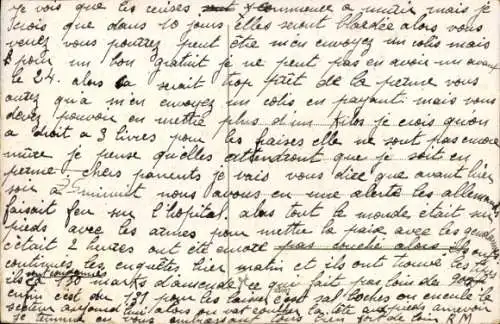 je vois que les cerises commence a murir mais je
crois que dans 10 jours elles seront alors vous
venez vous pourrez peut être m'en envoyez un colis mais
pour un bon gratuit je ne peut pas en avoir un avant
le 24. alors sa serait trop prêt de la perme vous
aurez qu'a m'en envoyez un colis en payant. mais vous
devez pouvoir en mettre plus d'un kilos je crois qu'on
a droit a 3 livres pour les fraises elle ne sont pas encore
mûre je pense qu'elles attendront que je soit en
perme. chers parents je vais vous dire que avant hier
soir a minuit nous avons eu une alerte les allemands
faisait feu sur l'hopital alors tout le monde était sur
pieds avec les armes pour mettre la paix avec les
c'était 2 heures ont été encore pas couché alors ils ont
continués les enquêtes hier matin et ils ont trouvé les
ils 130 marks d'amende ce que fait pas loin de
enfin c'est du 131 pour les c'est sal boches on encule le
secteur aujourd'hui alors on vat la tête aux pieds
je termine en vous embrassant tous bien fort R M